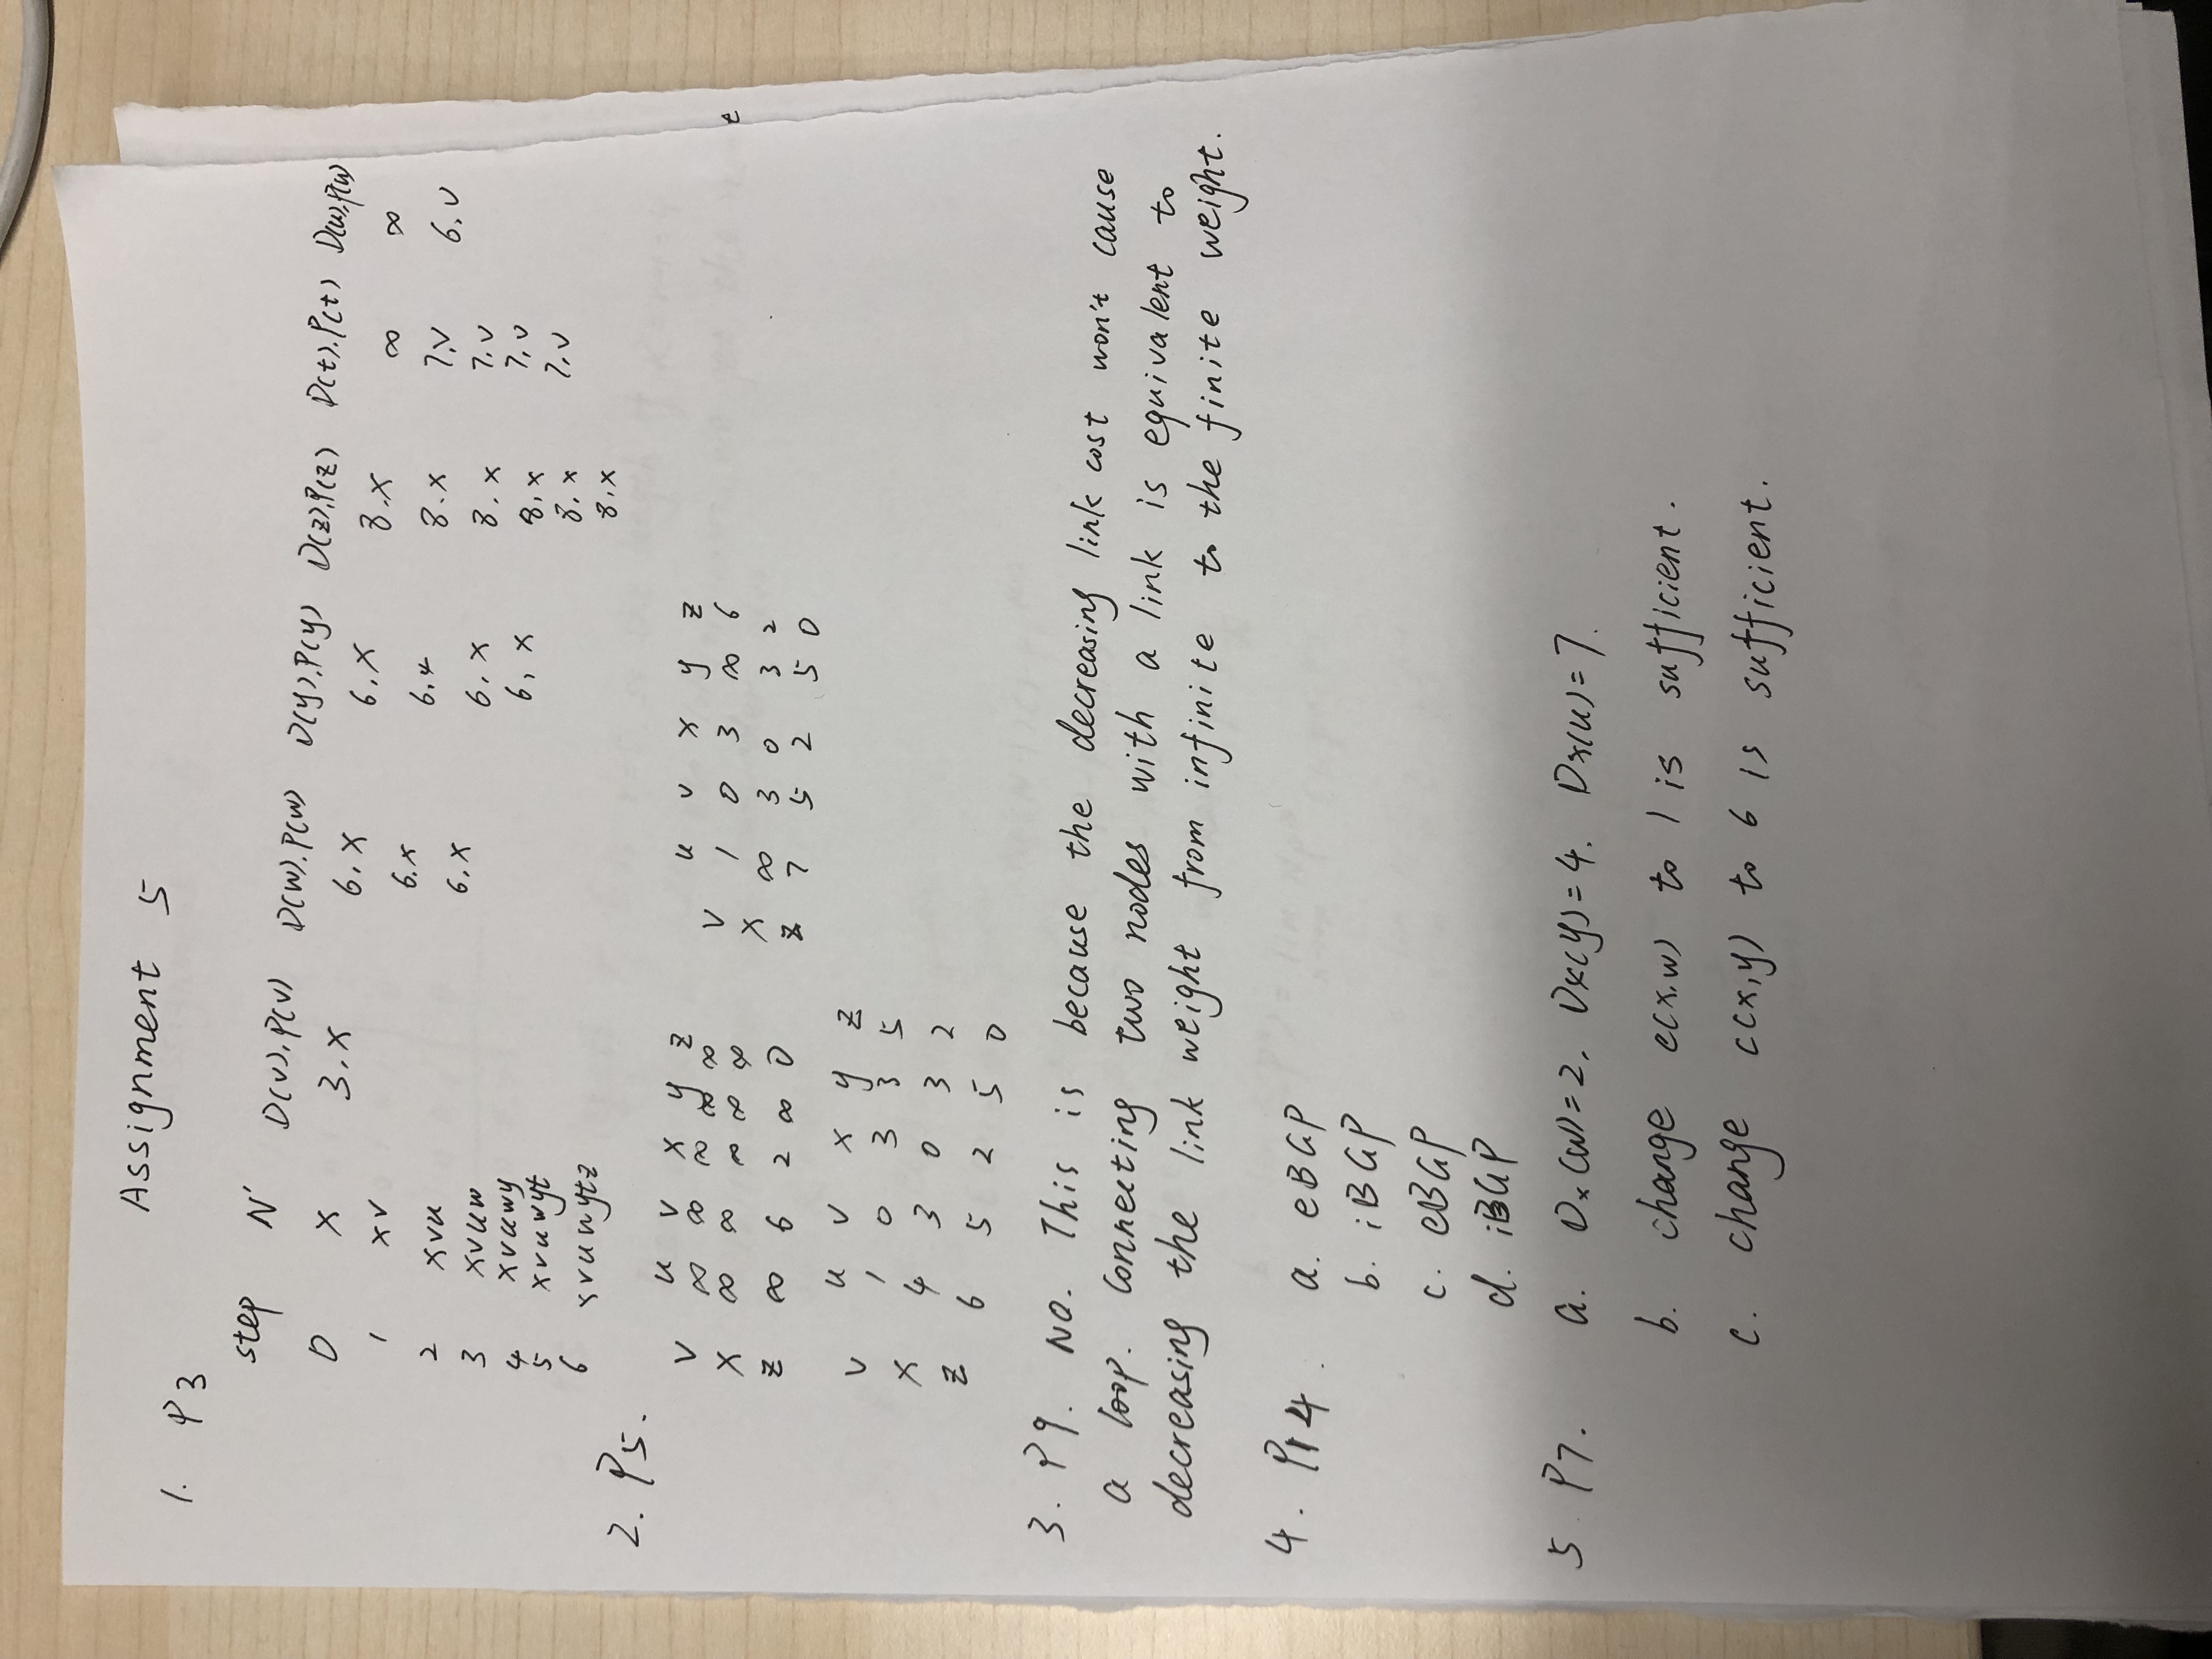 Assignment 5
1. P3
step N' D(v).P(v) D(w).P(w) D(y).P(y) D(z).P(z) D(t).P(t) D(u).P(u)
0 x 3.x 6.x 6.x 8.x ∞ ∞
1 xv 6.x 6.x 8.x 7.v 6.v
2 xvu 6.x 6.x 8.x 7.v
3 xvuw 6, x 8,x 7,v
4 xvuwy 8.x 7.v
5 xvuwyt 8.x
6 xvuwytz
2. P5.
u v x y z
v ∞ ∞ ∞ ∞ ∞
x ∞ ∞ ∞ ∞ ∞
z ∞ 6 2 ∞ 0
u v x y z
v 1 0 3 ∞ 6
x ∞ 3 0 3 2
z 7 5 2 5 0
u v x y z
v 1 0 3 3 5
x 4 3 0 3 2
z 6 5 2 5 0
3. P9. No. This is because the decreasing link cost won't cause
a loop. Connecting two nodes with a link is equivalent to
decreasing the link weight from infinite to the finite weight.
4. P14. a. eBGP
b. iBGP
c. eBGP
d. iBGP
5 P7. a. Dx(w)=2. Dx(y)=4. Dx(u)=7.
b. change c(x.w) to 1 is sufficient.
c. change c(x,y) to 6 is sufficient.
t